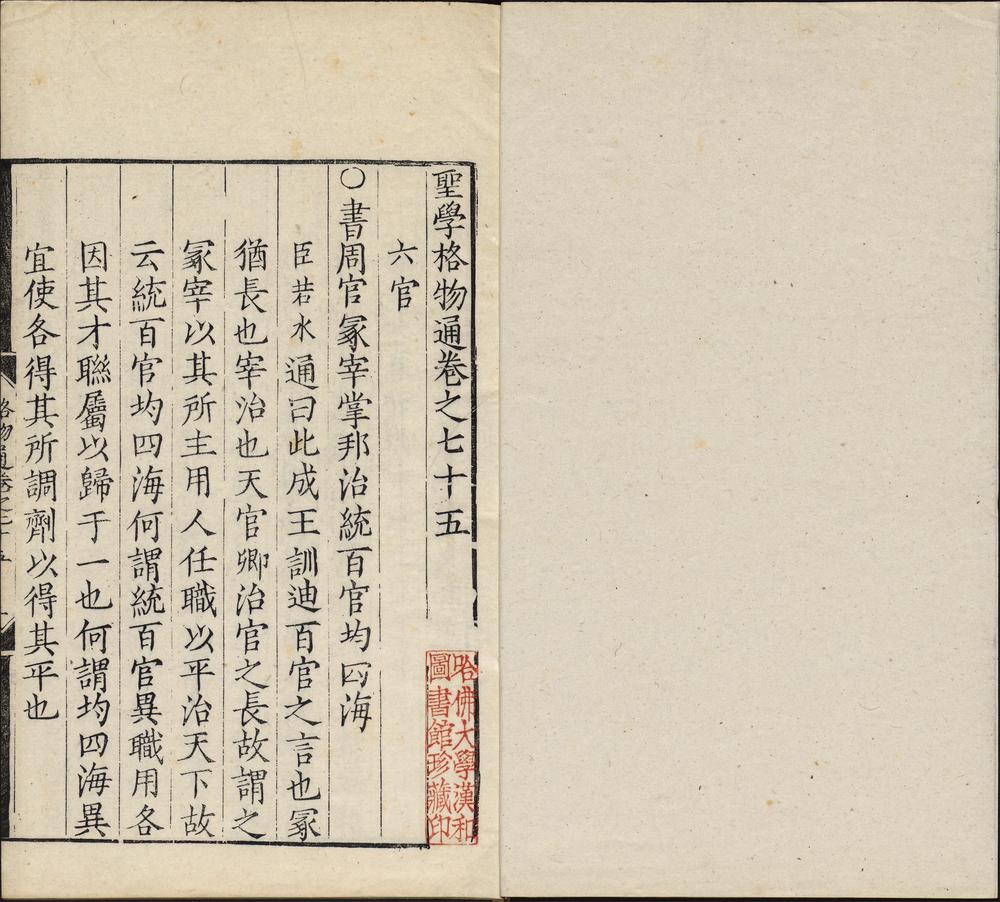 聖學格物通卷之七十五
六官
○書周官冢宰掌邦治統百官均四海
臣若水通曰此成王訓迪百官之言也冢
猶長也宰治也天官卿治官之長故謂之
冢宰以其所主用人任職以平治天下故
云統百官均四海何謂統百官異職用各
因其才聯屬以歸于一也何謂均四海異
宜使各得其所調劑以得其平也
格物通卷之七十五
哈佛大學漢和
圖書館珍藏印